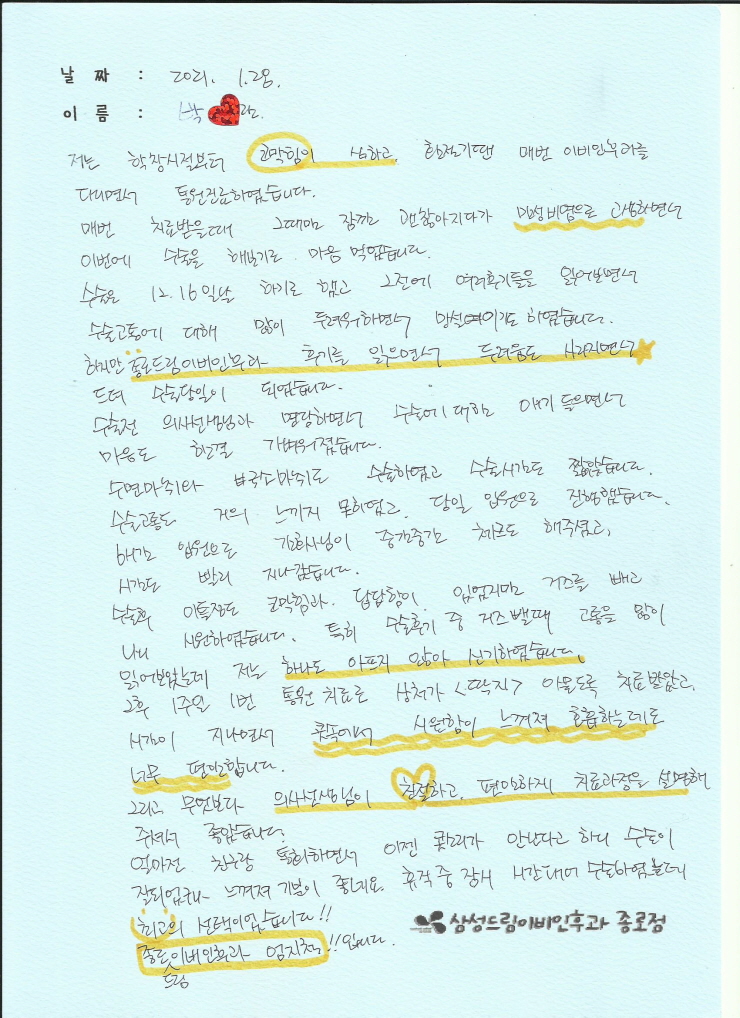 날 짜 : 2021. 1.28.
이 름 : 박
저는 학창시절부터 코막힘이 심하고, 환절기땐 매번 이비인후과를
다니면서 통원진료하였습니다.
매번 치료받을때 그때마다 잠깐 괜찮아지다가 만성비염으로 고생하면서
이번에 수술을 해보기로 마음 먹었습니다.
수술은 12.16일날 하기로 했고 그전에 여러후기들을 읽어보면서
수술고통에 대해 많이 두려워하면서 망설여이기도 하였습니다.
하지만 종로드림이비인후과 후기를 읽으면서 두려움도 사라지면서
드뎌 수술당일이 되었습니다.
수술전 의사선생님과 면담하면서 수술에 대하는 얘기 들으면서
마음도 한결 가벼워졌습니다.
수면마취와 부분국소마취로 수술하였고 수술시간도 짧았습니다.
수술고통도 거의 느끼지 못하였고, 당일 입원으로 진행했습니다.
입원으로 간호사님이 중간중간 체크도 해주셨고,
시간도 빨리 지나갔습니다.
수술후 이틀정도 코막힘과 답답함이 있었지만 거즈를 빼고
나니 시원하였습니다. 특히 수술후기 중 거즈뺄때 고통을 많이
읽어보았는데 저는 하나도 아프지 않아 신기하였습니다.
그후 1주일 1번 통원 치료로 상처가 <딱지> 아물도록 치료받았고,
시간이 지나면서 콧속에서 시원함이 느껴져 호흡하는데도
너무 편안합니다.
그리고 무엇보다 의사선생님이 친절하고, 편안하게 치료과정을 설명해
주셔서 좋았습니다.
얼마전 친구랑 통화하면서 이젠 콧소리가 안난다고 하니 수술이
잘되었구나 느껴져 기분이 좋네요. 휴직 중 잠시 시간내어 수술하였는데
최고의 선택이었습니다!!
종로드림이비인후과 엄지척!! 입니다.
삼성드림이비인후과 종로점